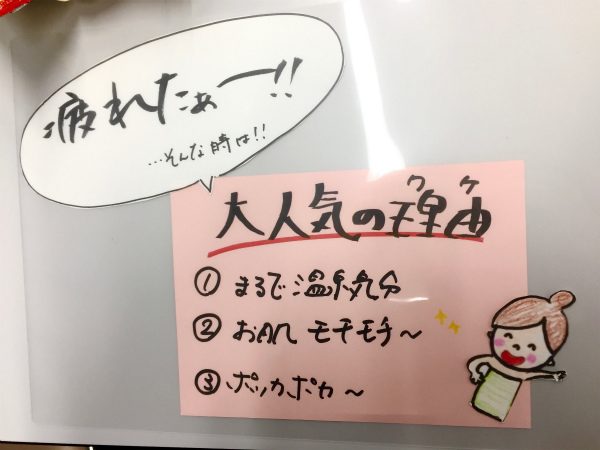 疲れたぁー!!
...そんな時は!!
ワケ
大人気の理由
① まるで温泉気分
② お肌 モチモチ〜
③ ポッカポカ〜